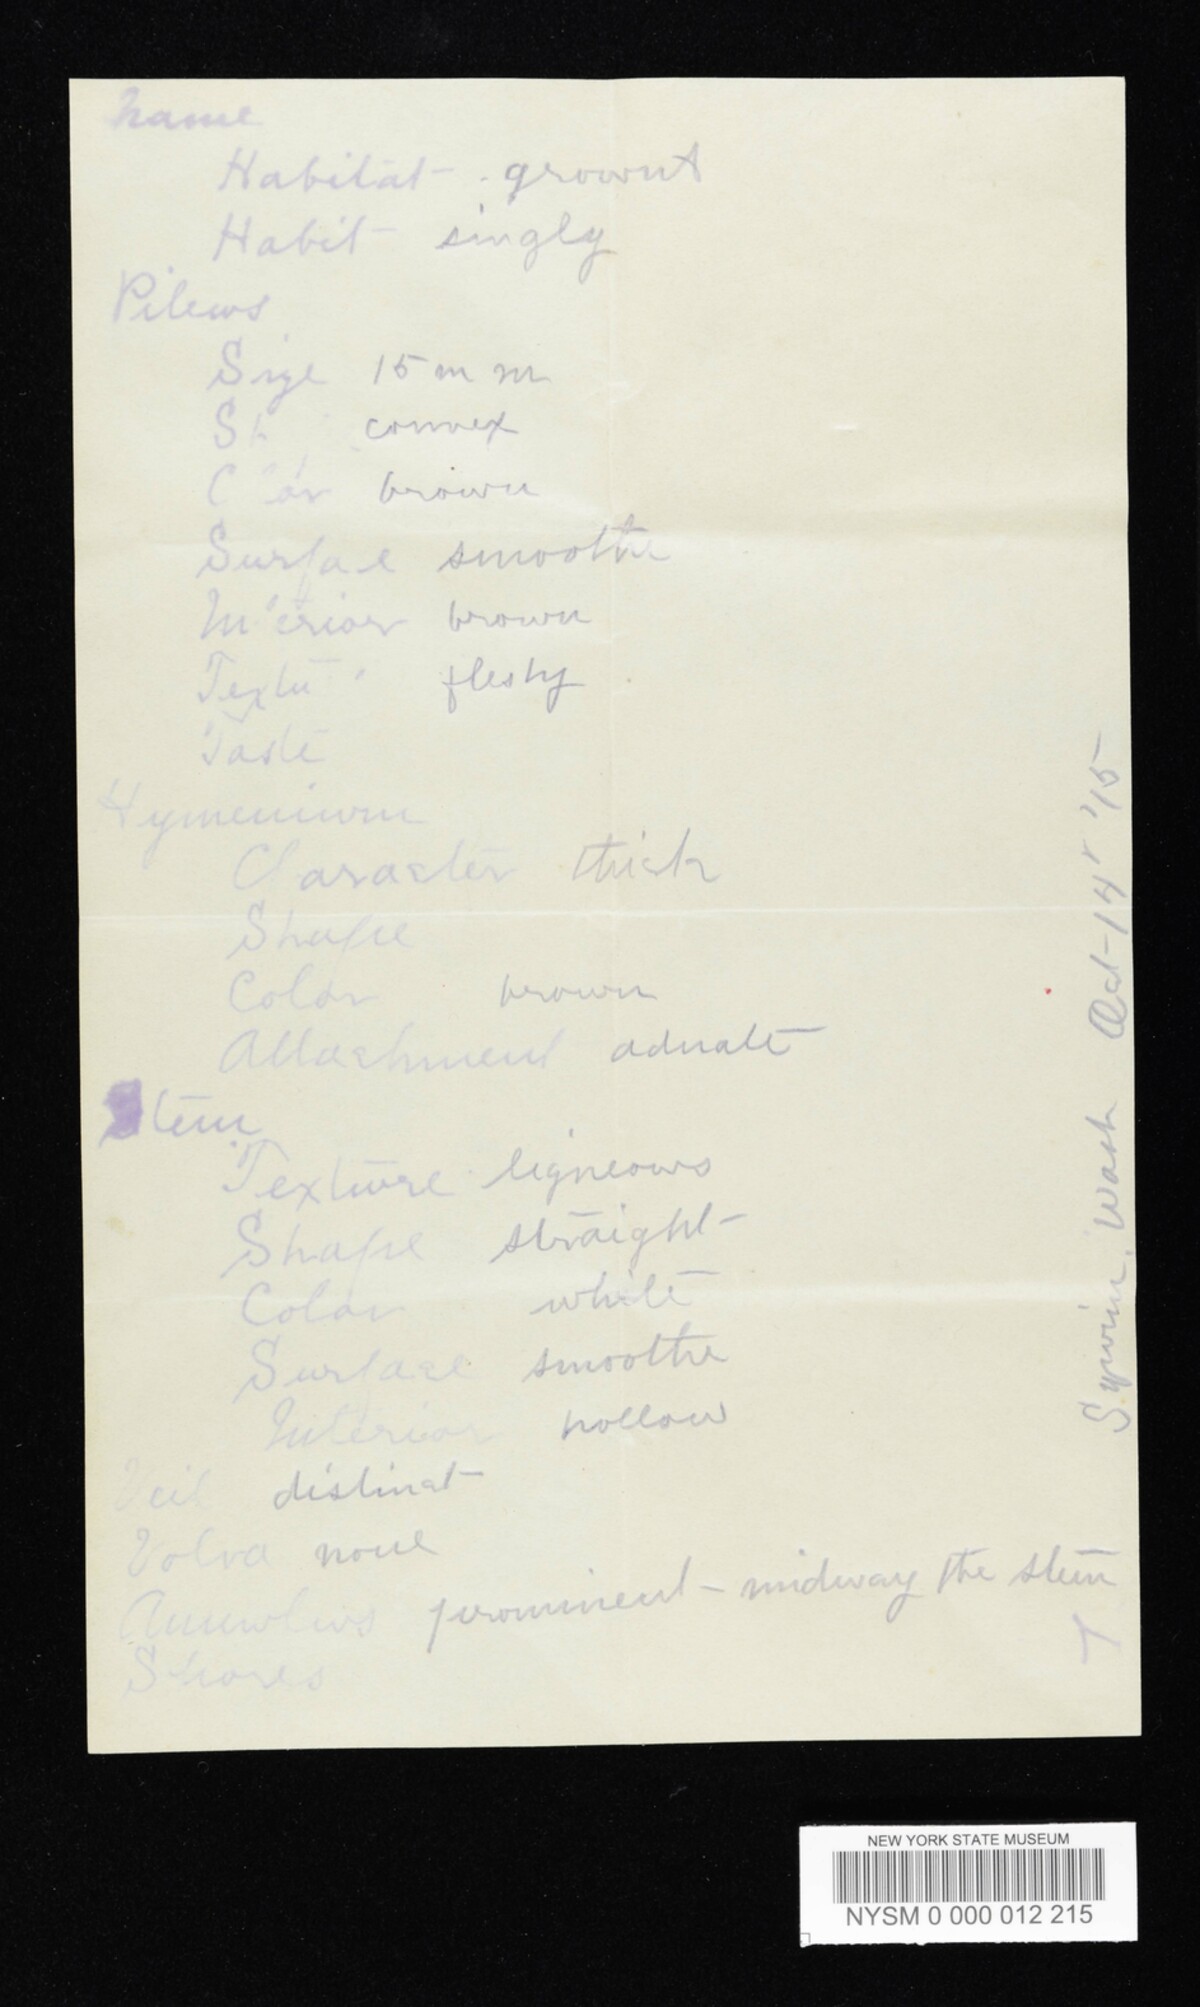 Name
Habitat - grownt
Habit - singly
Pileus
Size 15 m m
Sh convex
C lor brown
Surface smooth
Interior brown
Textu fleshy
Taste
Hymenium
Character thick
Shape
Color brown
Attachment adnate
Stem
Texture ligneous
Shape straight
Color white
Surface smooth
Interior hollow
Veil distinct
Volva none
Annulus prominent - midway the stem
Spores
Wash Oct-14' '15
NEW YORK STATE MUSEUM
NYSM 0 000 012 215